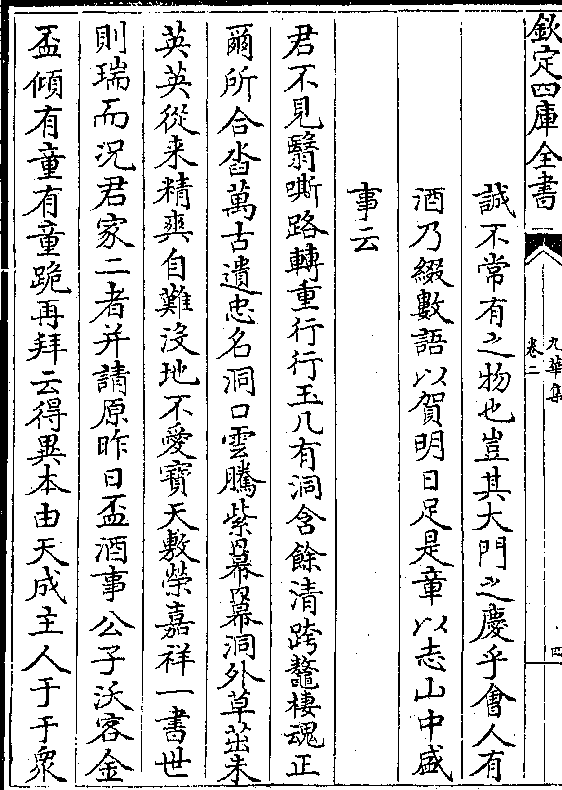 欽定四庫全書
九華集
卷二
四
誠不常有之物也豈其大門之慶乎會人有
酒乃綴數語以賀明日足是章以志山中盛
事云
君不見翳嘶路轉重行行玉几有洞含餘清跨鼇棲魂正
爾所合沓萬古遺忠名洞口雲騰紫幕幕洞外草茁朱
英英從来精爽自難没地不愛寶天敷榮嘉祥一書世
則瑞而況君家二者并請原昨日盃酒事公子沃客金
盃傾有童有童跪再拜云得異本由天成主人于于衆